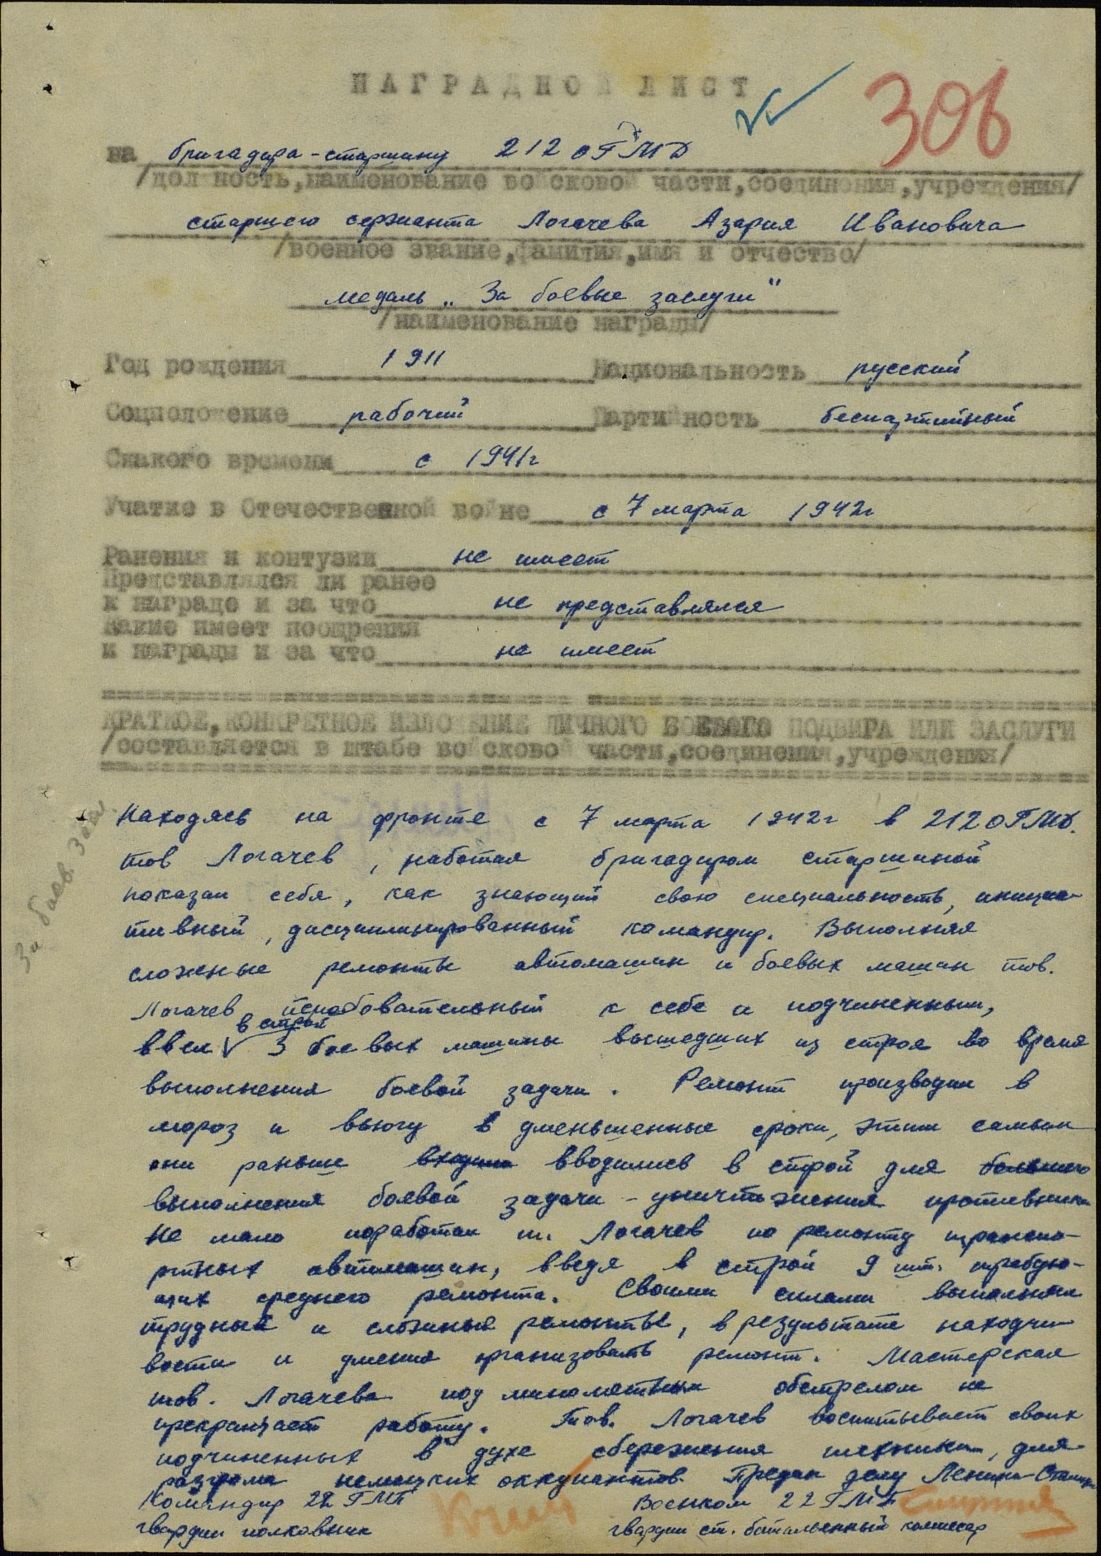 НАГРАДНОЙ ЛИСТ
306
на бригадира-старшину 212 оГМД
/должность, наименование войсковой части, соединения, учреждения/
старшего сержанта Логачева Азария Ивановича
/военное звание, фамилия, имя и отчество/
медаль „За боевые заслуги"
/наименование награды/
Год рождения 1911 Национальность русский
Соцположение рабочий Партийность беспартийный
Скакого времени с 1941г
Учатие в Отечественной войне с 7 марта 1942г
Ранения и контузии не имеет
Представлялся ли ранее
к награде и за что не представлялся
Какие имеет поощрения
и награды и за что не имеет
КРАТКОЕ, КОНКРЕТНОЕ ИЗЛОЖЕНИЕ ЛИЧНОГО БОЕВОГО ПОДВИГА ИЛИ ЗАСЛУГИ
/составляется в штабе войсковой части, соединения, учреждения/
За боев. засл.
Находясь на фронте с 7 марта 1942г в 212 ОГМД.
тов Логачев, работая бригадиром старшиной
показал себя, как знающий свою специальность, инициа-
тивный, дисциплинированный командир. Выполняя
сложные ремонты автомашин и боевых машин тов.
Логачев требовательный к себе и подчиненным,
в строй
ввел 3 боевых машины вышедших из строя во время
выполнения боевой задачи. Ремонт производил в
мороз и вьюгу в уменьшенные сроки, этим самым
они раньше вводились в строй для
выполнения боевой задачи - уничтожения противника
Не мало поработал т. Логачев по ремонту транспо-
ртных автомашин, введя в строй 9 шт. требую-
щих среднего ремонта. Своими силами выполнял
трудный и сложный ремонты, в результате находчи
вости и умения организовать ремонт. Мастерская
тов. Логачева под минометным обстрелом не
прекращает работу. Тов. Логачев воспитывает своих
подчиненных в духе сбережения техники, для
разгрома немецких оккупантов. Предан делу Ленина-Сталина
Командир 22 ГМП Военком 22 ГМП
гвардии полковник гвардии ст. батальонный комиссар